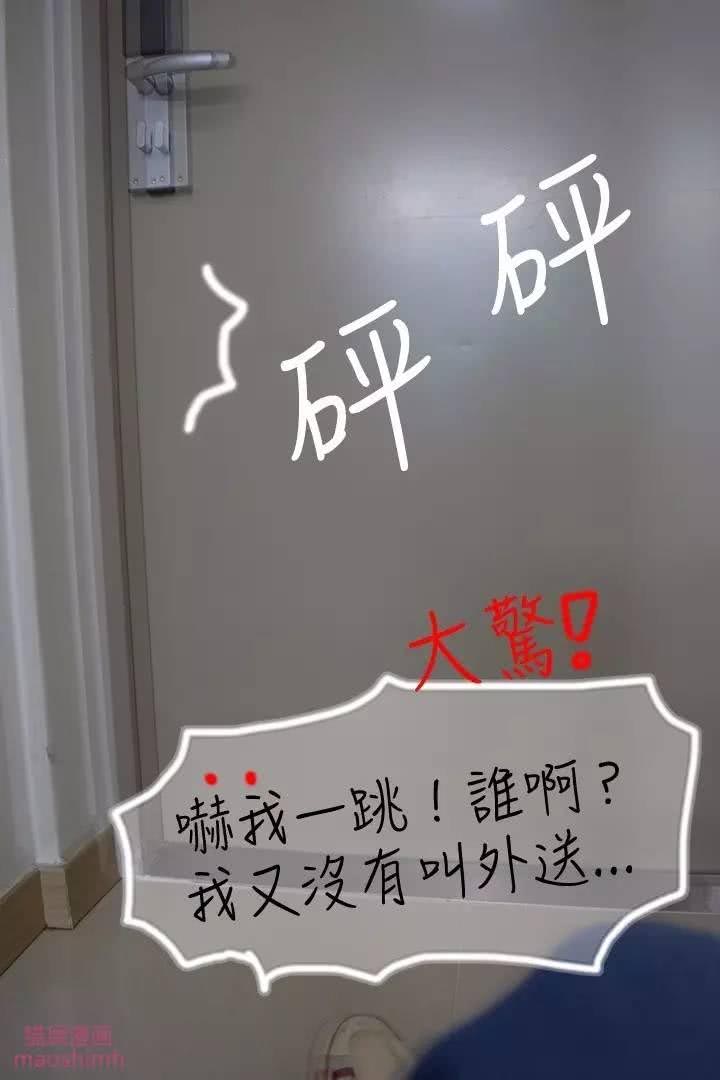 砰
砰
大驚！
嚇我一跳！誰啊？
我又沒有叫外送...
maoshimh